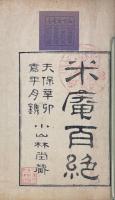 米庵百絶
天保辛卯
嘉平月鐫
小山林堂藏